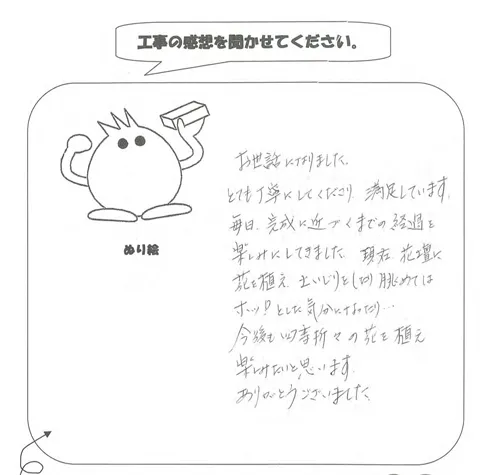 工事の感想を聞かせてください。
ぬり絵
お世話になりました。
とても丁寧にしてくださり、満足しています。
毎日、完成に近づくまでの経過を
楽しみにしてきました。現在、花壇に
花を植え、土いじりをしたり眺めては
ホッ!とした気分になったり…
今後も四季折々の花を植え
楽しみたいと思います。
ありがとうございました。